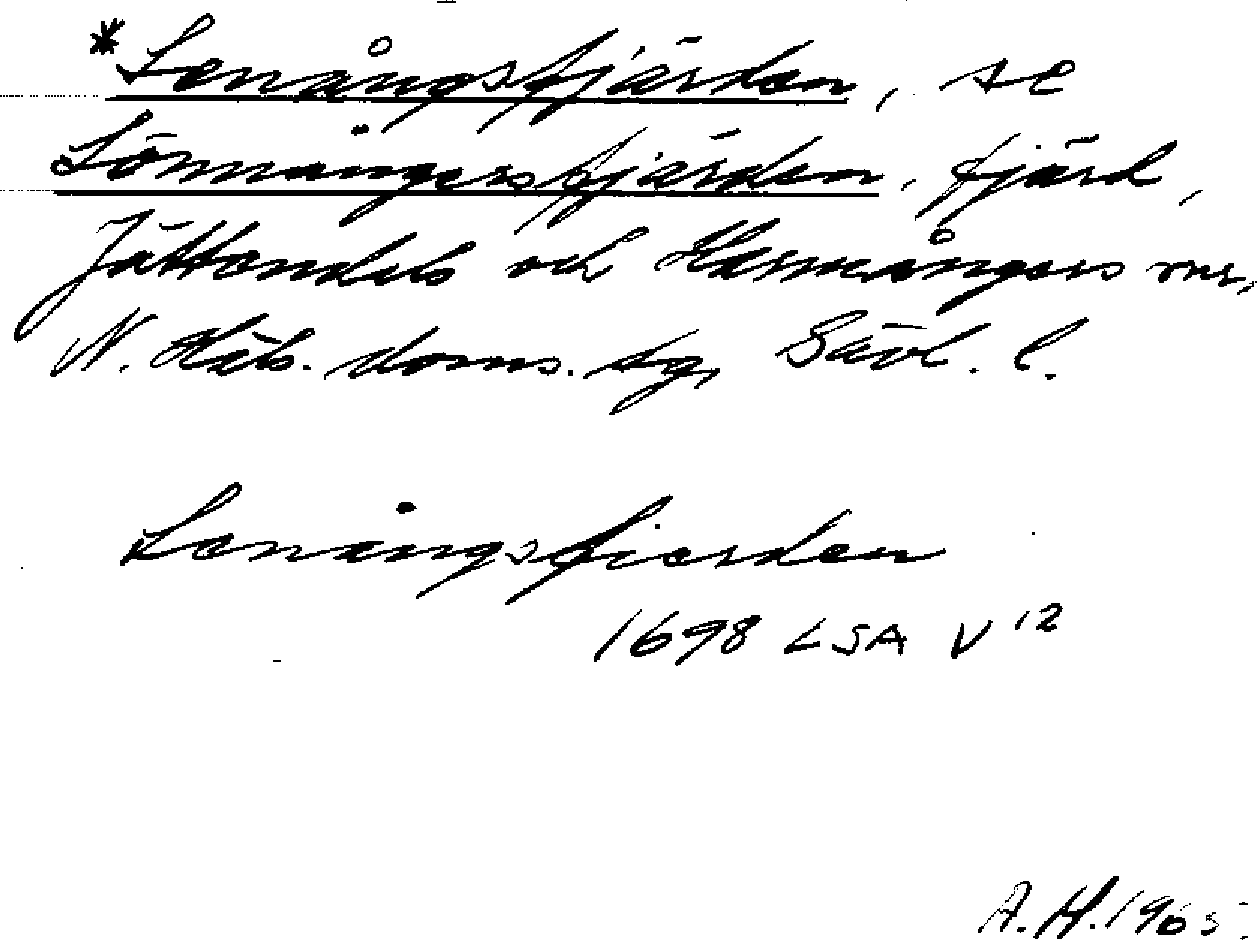 *Lenångsfjärden, se
Lönnångersfjärden, fjärd,
Jättendals och Harmångers snr,
N. Häls. doms. sg, Gävl. l.
Lenångsfierden
1698 LSA V 12
A.H. 1965.